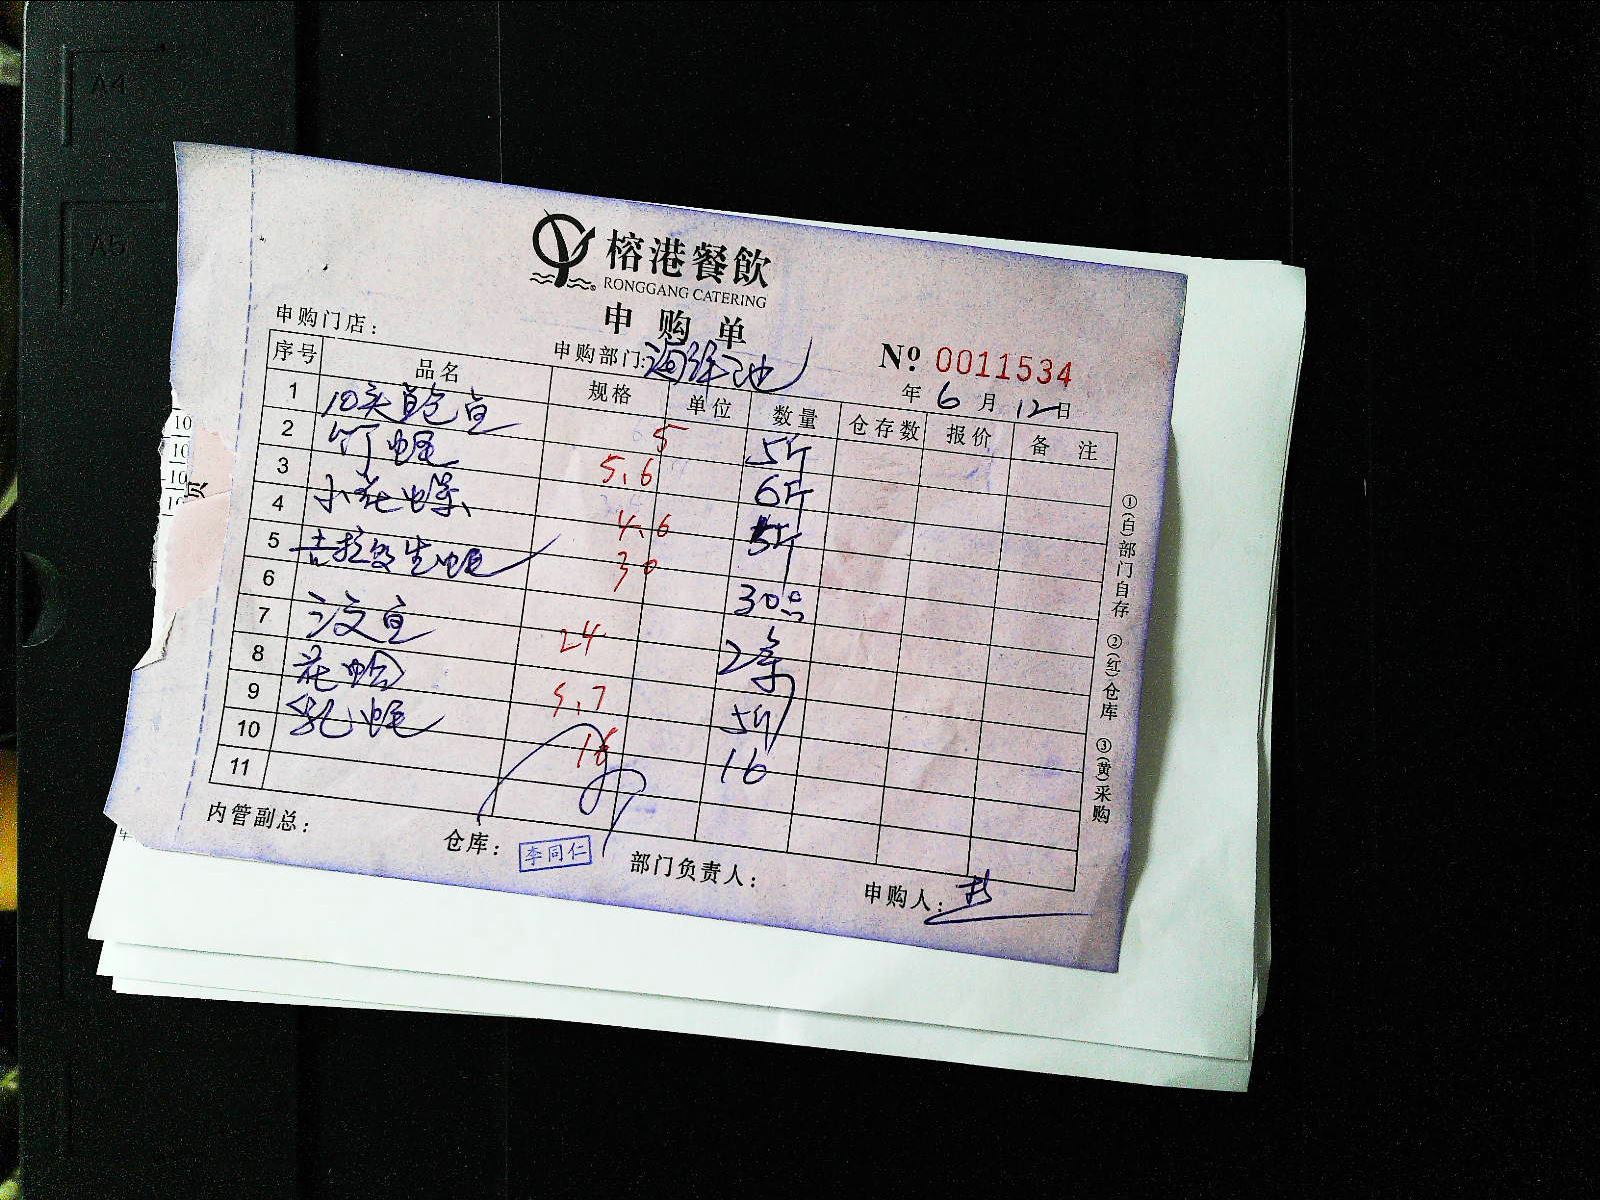 A4
A5
榕港餐飲
RONGGANG CATERING
申购单
申购门店：
申购部门：海鲜池
№ 0011534
年 6 月 12 日
序号 品名 规格 单位 数量 仓存数 报价 备注
1 10头鲍鱼 5 5斤
2 竹蛏 5.6 6斤
3 小花螺 4.6 5斤
4 吉拉多生蚝 30 30只
5
6 汶鱼 24 2条
7 花蛤 5.7 5斤
8 乳蚝 16 16
9
10
11
①(白)部门自存 ②(红)仓库 ③(黄)采购
内管副总：
仓库： 李同仁
部门负责人：
申购人：
10
10
10
10